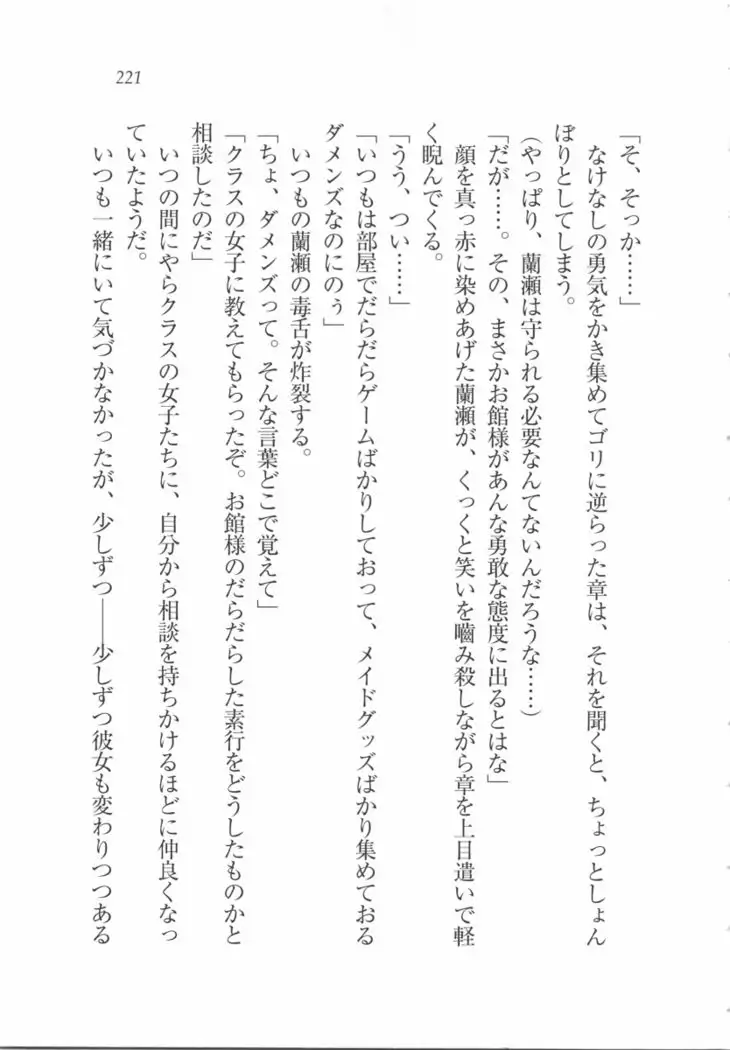 221
「そ、そっか……」
なけなしの勇気をかき集めてゴリに逆らった章は、それを聞くと、ちょっとしょん
ぼりとしてしまう。
（やっぱり、蘭瀬は守られる必要なんてないんだろうな……）
「だが……。その、まさかお館様があんな勇敢な態度に出るとはな」
顔を真っ赤に染めあげた蘭瀬が、くっくと笑いを嚙み殺しながら章を上目遣いで軽
く睨んでくる。
「うう、つい……」
「いつもは部屋でだらだらゲームばかりしておって、メイドグッズばかり集めておる
ダメンズなのにのぅ」
いつもの蘭瀬の毒舌が炸裂する。
「ちょ、ダメンズって。そんな言葉どこで覚えて」
「クラスの女子に教えてもらったぞ。お館様のだらだらした素行をどうしたものかと
相談したのだ」
いつの間にやらクラスの女子たちに、自分から相談を持ちかけるほどに仲良くなっ
ていたようだ。
いつも一緒にいて気づかなかったが、少しずつ――少しずつ彼女も変わりつつある